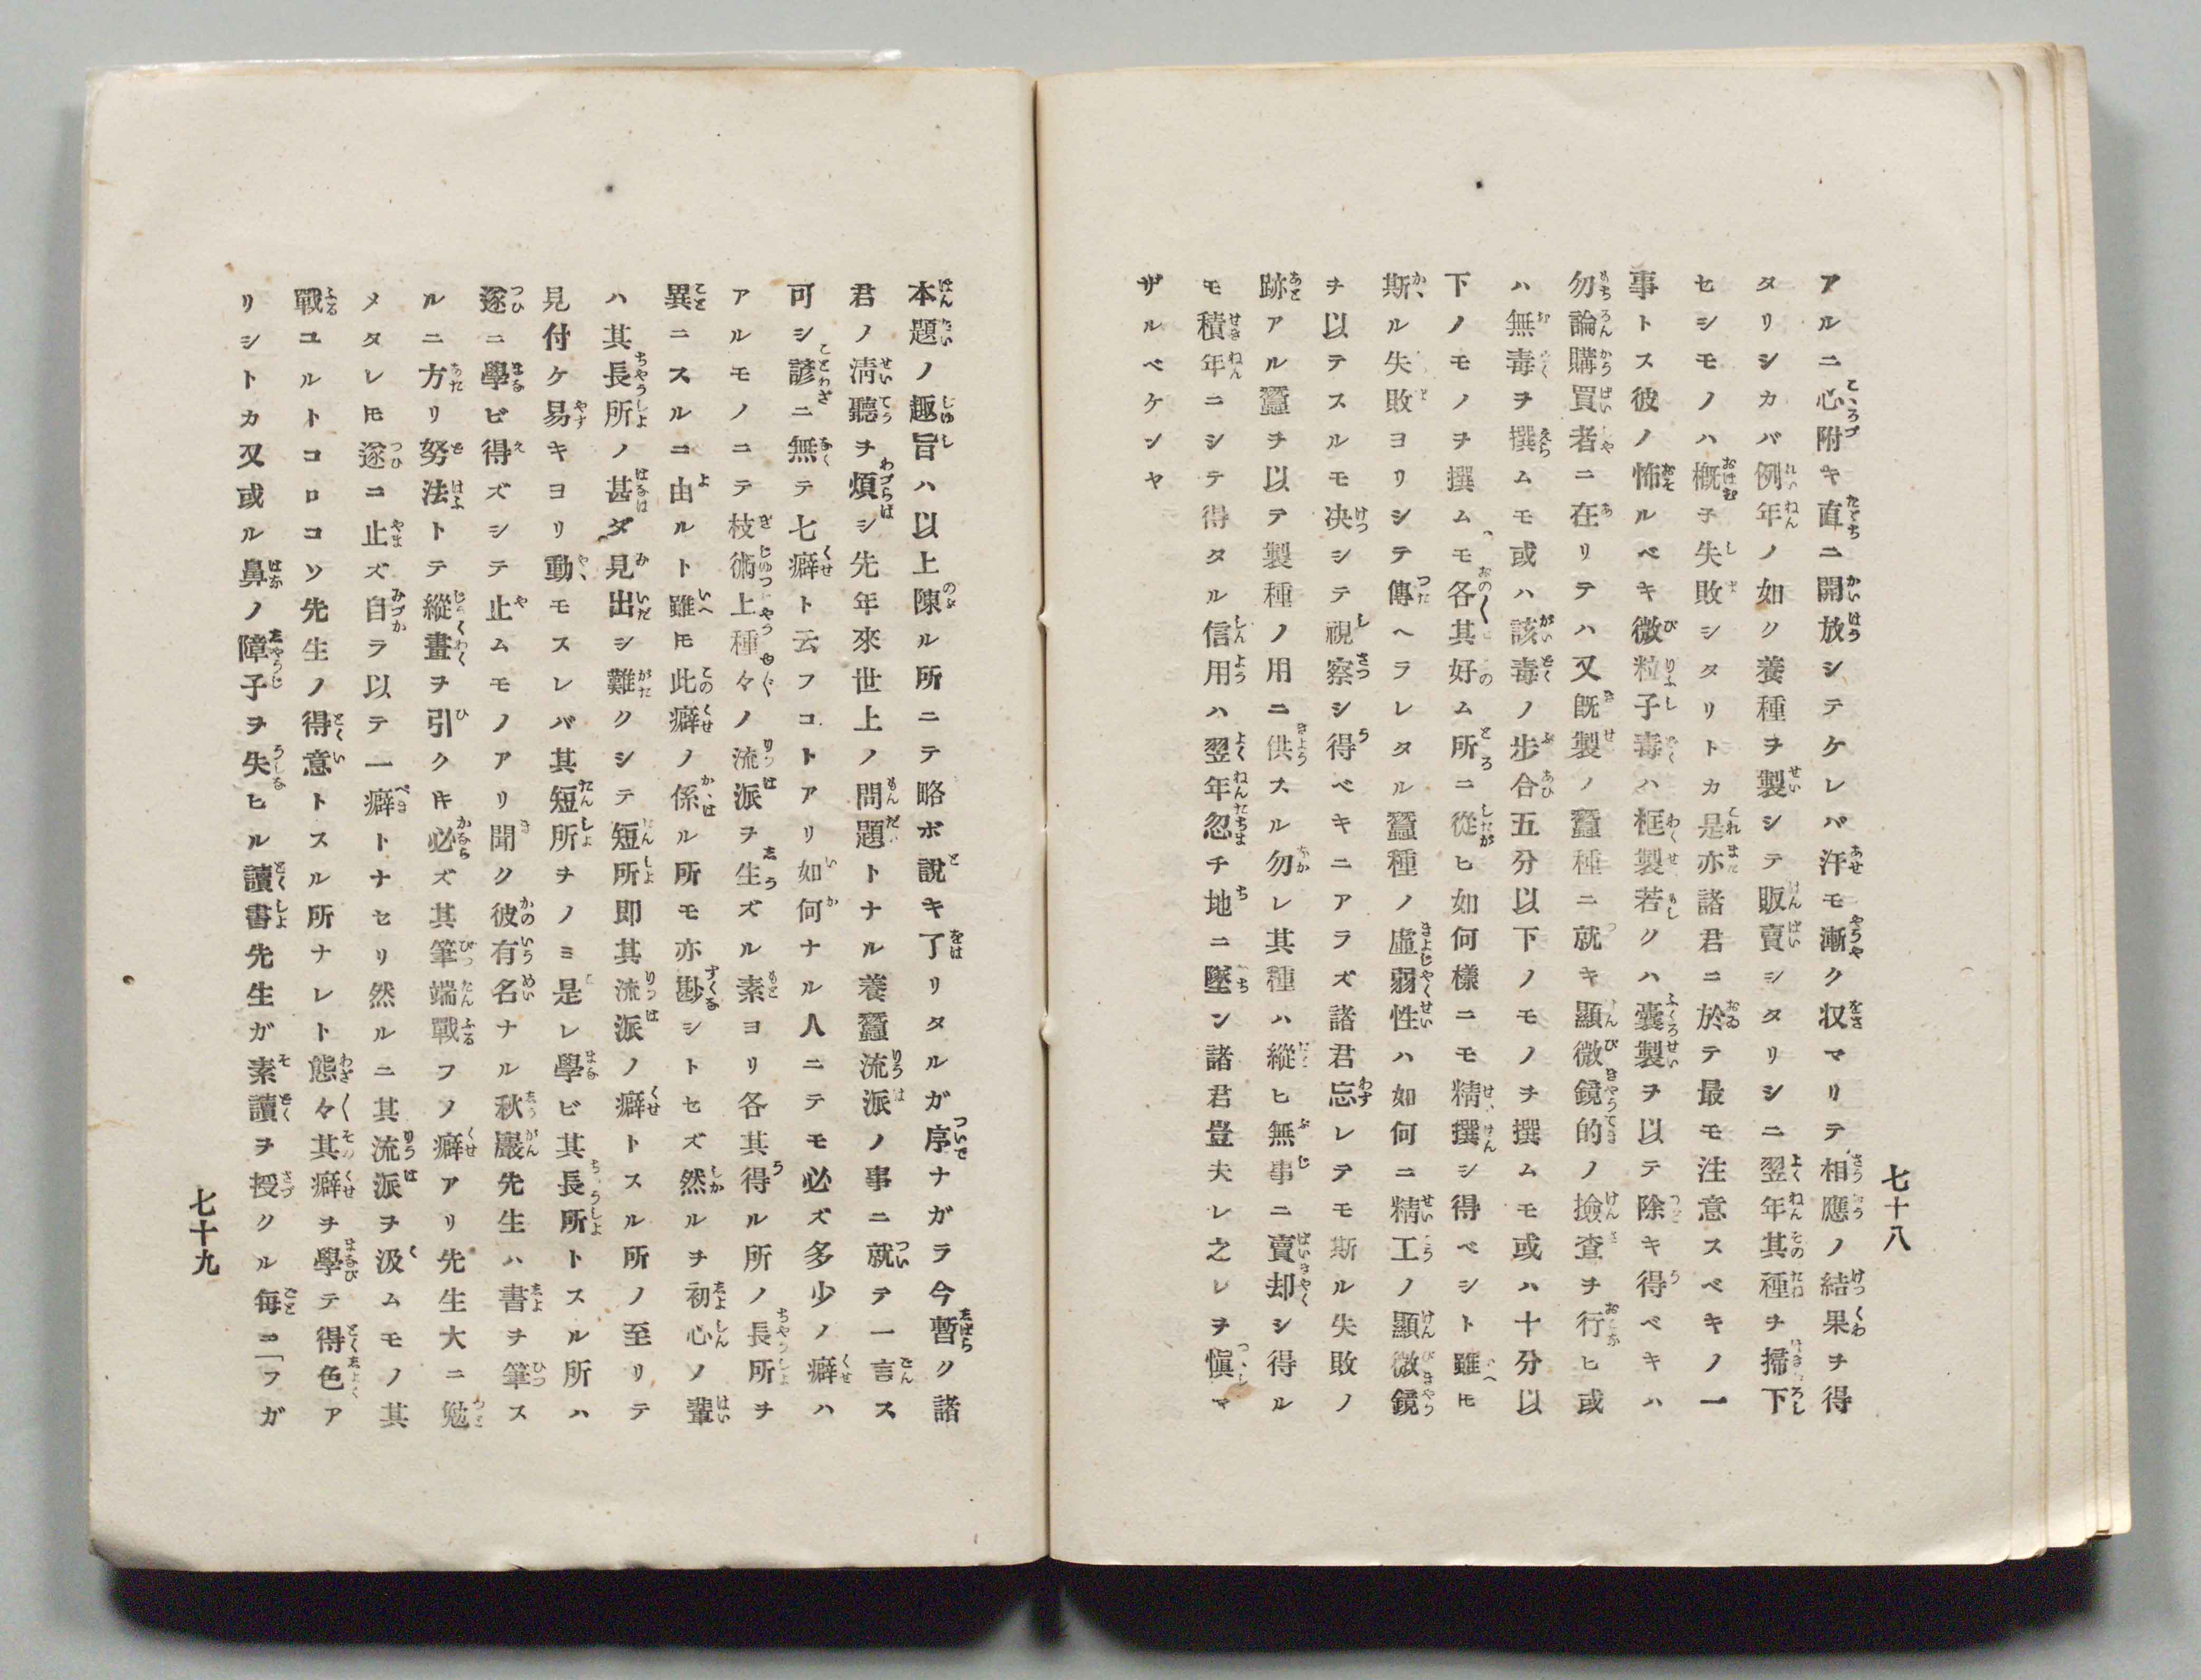 七十八
アルニ心附キ直ニ開放シテケレバ汗モ漸ク収マリテ相應ノ結果ヲ得
タリシカバ例年ノ如ク養種ヲ製シテ販賣シタリシニ翌年其種ヲ掃下
セシモノハ概子失敗シタリトカ是亦諸君ニ於テ最モ注意スベキノ一
事トス彼ノ怖ルベキ微粒子毒ハ框製若クハ囊製ヲ以テ除キ得ベキハ
勿論購買者ニ在リテハ又既製ノ蠶種ニ就キ顯微鏡的ノ撿査ヲ行ヒ或
ハ無毒ヲ撰ムモ或ハ該毒ノ步合五分以下ノモノヲ撰ムモ或ハ十分以
下ノモノヲ撰ムモ各其好ム所ニ從ヒ如何樣ニモ精撰シ得ベシト雖𪜈
斯ル失敗ヨリシテ傳ヘラレタル蠶種ノ虛弱性ハ如何ニ精工ノ顯微鏡
ヲ以テスルモ决シテ視察シ得ベキニアラズ諸君忘レテモ斯ル失敗ノ
跡アル蠶ヲ以テ製種ノ用ニ供スル勿レ其種ハ縱ヒ無事ニ賣却シ得ル
モ積年ニシテ得タル信用ハ翌年忽チ地ニ墜ン諸君豈夫レ之レヲ愼マ
ザルベケンヤ
本題ノ趣旨ハ以上陳ル所ニテ略ボ說キ了リタルガ序ナガラ今暫ク諸
君ノ淸聽ヲ煩シ先年來世上ノ問題トナル養蠶流派ノ事ニ就テ一言ス
可シ諺ニ無テ七癖ト云フコトアリ如何ナル人ニテモ必ズ多少ノ癖ハ
アルモノニテ枝術上種々ノ流派ヲ生ズル素ヨリ各其得ル所ノ長所ヲ
異ニスルニ由ルト雖𪜈此癖ノ係ル所モ亦尠シトセズ然ルヲ初心ノ輩
ハ其長所ノ甚ダ見出シ難クシテ短所即其流派ノ癖トスル所ノ至リテ
見付ケ易キヨリ動モスレバ其短所ヲノミ是レ學ビ其長所トスル所ハ
遂ニ學ビ得ズシテ止ムモノアリ聞ク彼有名ナル秋巖先生ハ書ヲ筆ス
ルニ方リ努法トテ縱畫ヲ引クキ必ズ其筆端戰フノ癖アリ先生大ニ勉
メタレ𪜈遂ニ止ズ自ラ以テ一癖トナセリ然ルニ其流派ヲ汲ムモノ其
戰ユルトコロコソ先生ノ得意トスル所ナレト態々其癖ヲ學テ得色ア
リシトカ又或ル鼻ノ障子ヲ失ヒル讀書先生ガ素讀ヲ授クル每ニ「フガ
七十九